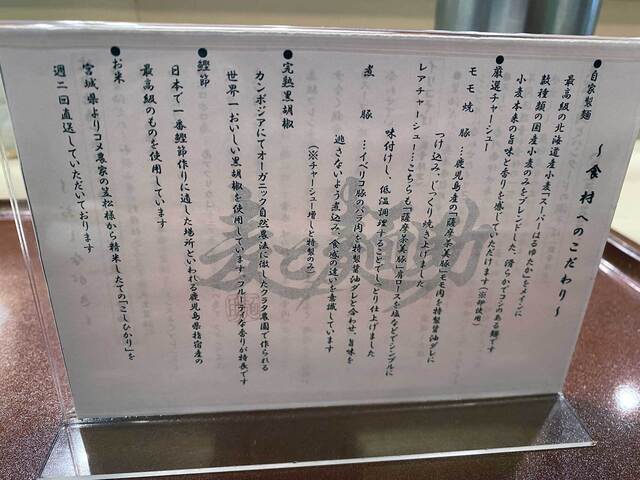 ～食材へのこだわり～
●自家製麺
最高級の北海道産小麦「スーパーはるゆたか」をメインに
数種類の国産小麦のみをブレンドした、滑らかでコシのある麺です
小麦本来の旨味と香りを感じていただけます（※卵使用）
●厳選チャーシュー
モモ焼豚…鹿児島産の「薩摩茶美豚」モモ肉を特製醤油ダレに
つけ込み、じっくり焼き上げました
レアチャーシュー…こちらも「薩摩茶美豚」肩ロースを塩などでシンプルに
味付けし、低温調理することでしっとり仕上げました
煮豚…イベリコ豚のバラ肉を特製醤油ダレと合わせ、旨味を
逃さないよう煮込み、食感の違いを意識しています
（※チャーシュー増しと特製のみ）
●完熟黒胡椒
カンボジアにてオーガニック自然農法に徹したクラタ農園で作られる
世界一おいしい黒胡椒を使用しています。フルーティな香りが特長です
●鰹節
日本で一番鰹節作りに適した場所といわれる鹿児島県指宿産の
最高級のものを使用しています
●お米
宮城県よりコメ農家の笠松様から精米したての「こしひかり」を
週二回直送していただいております